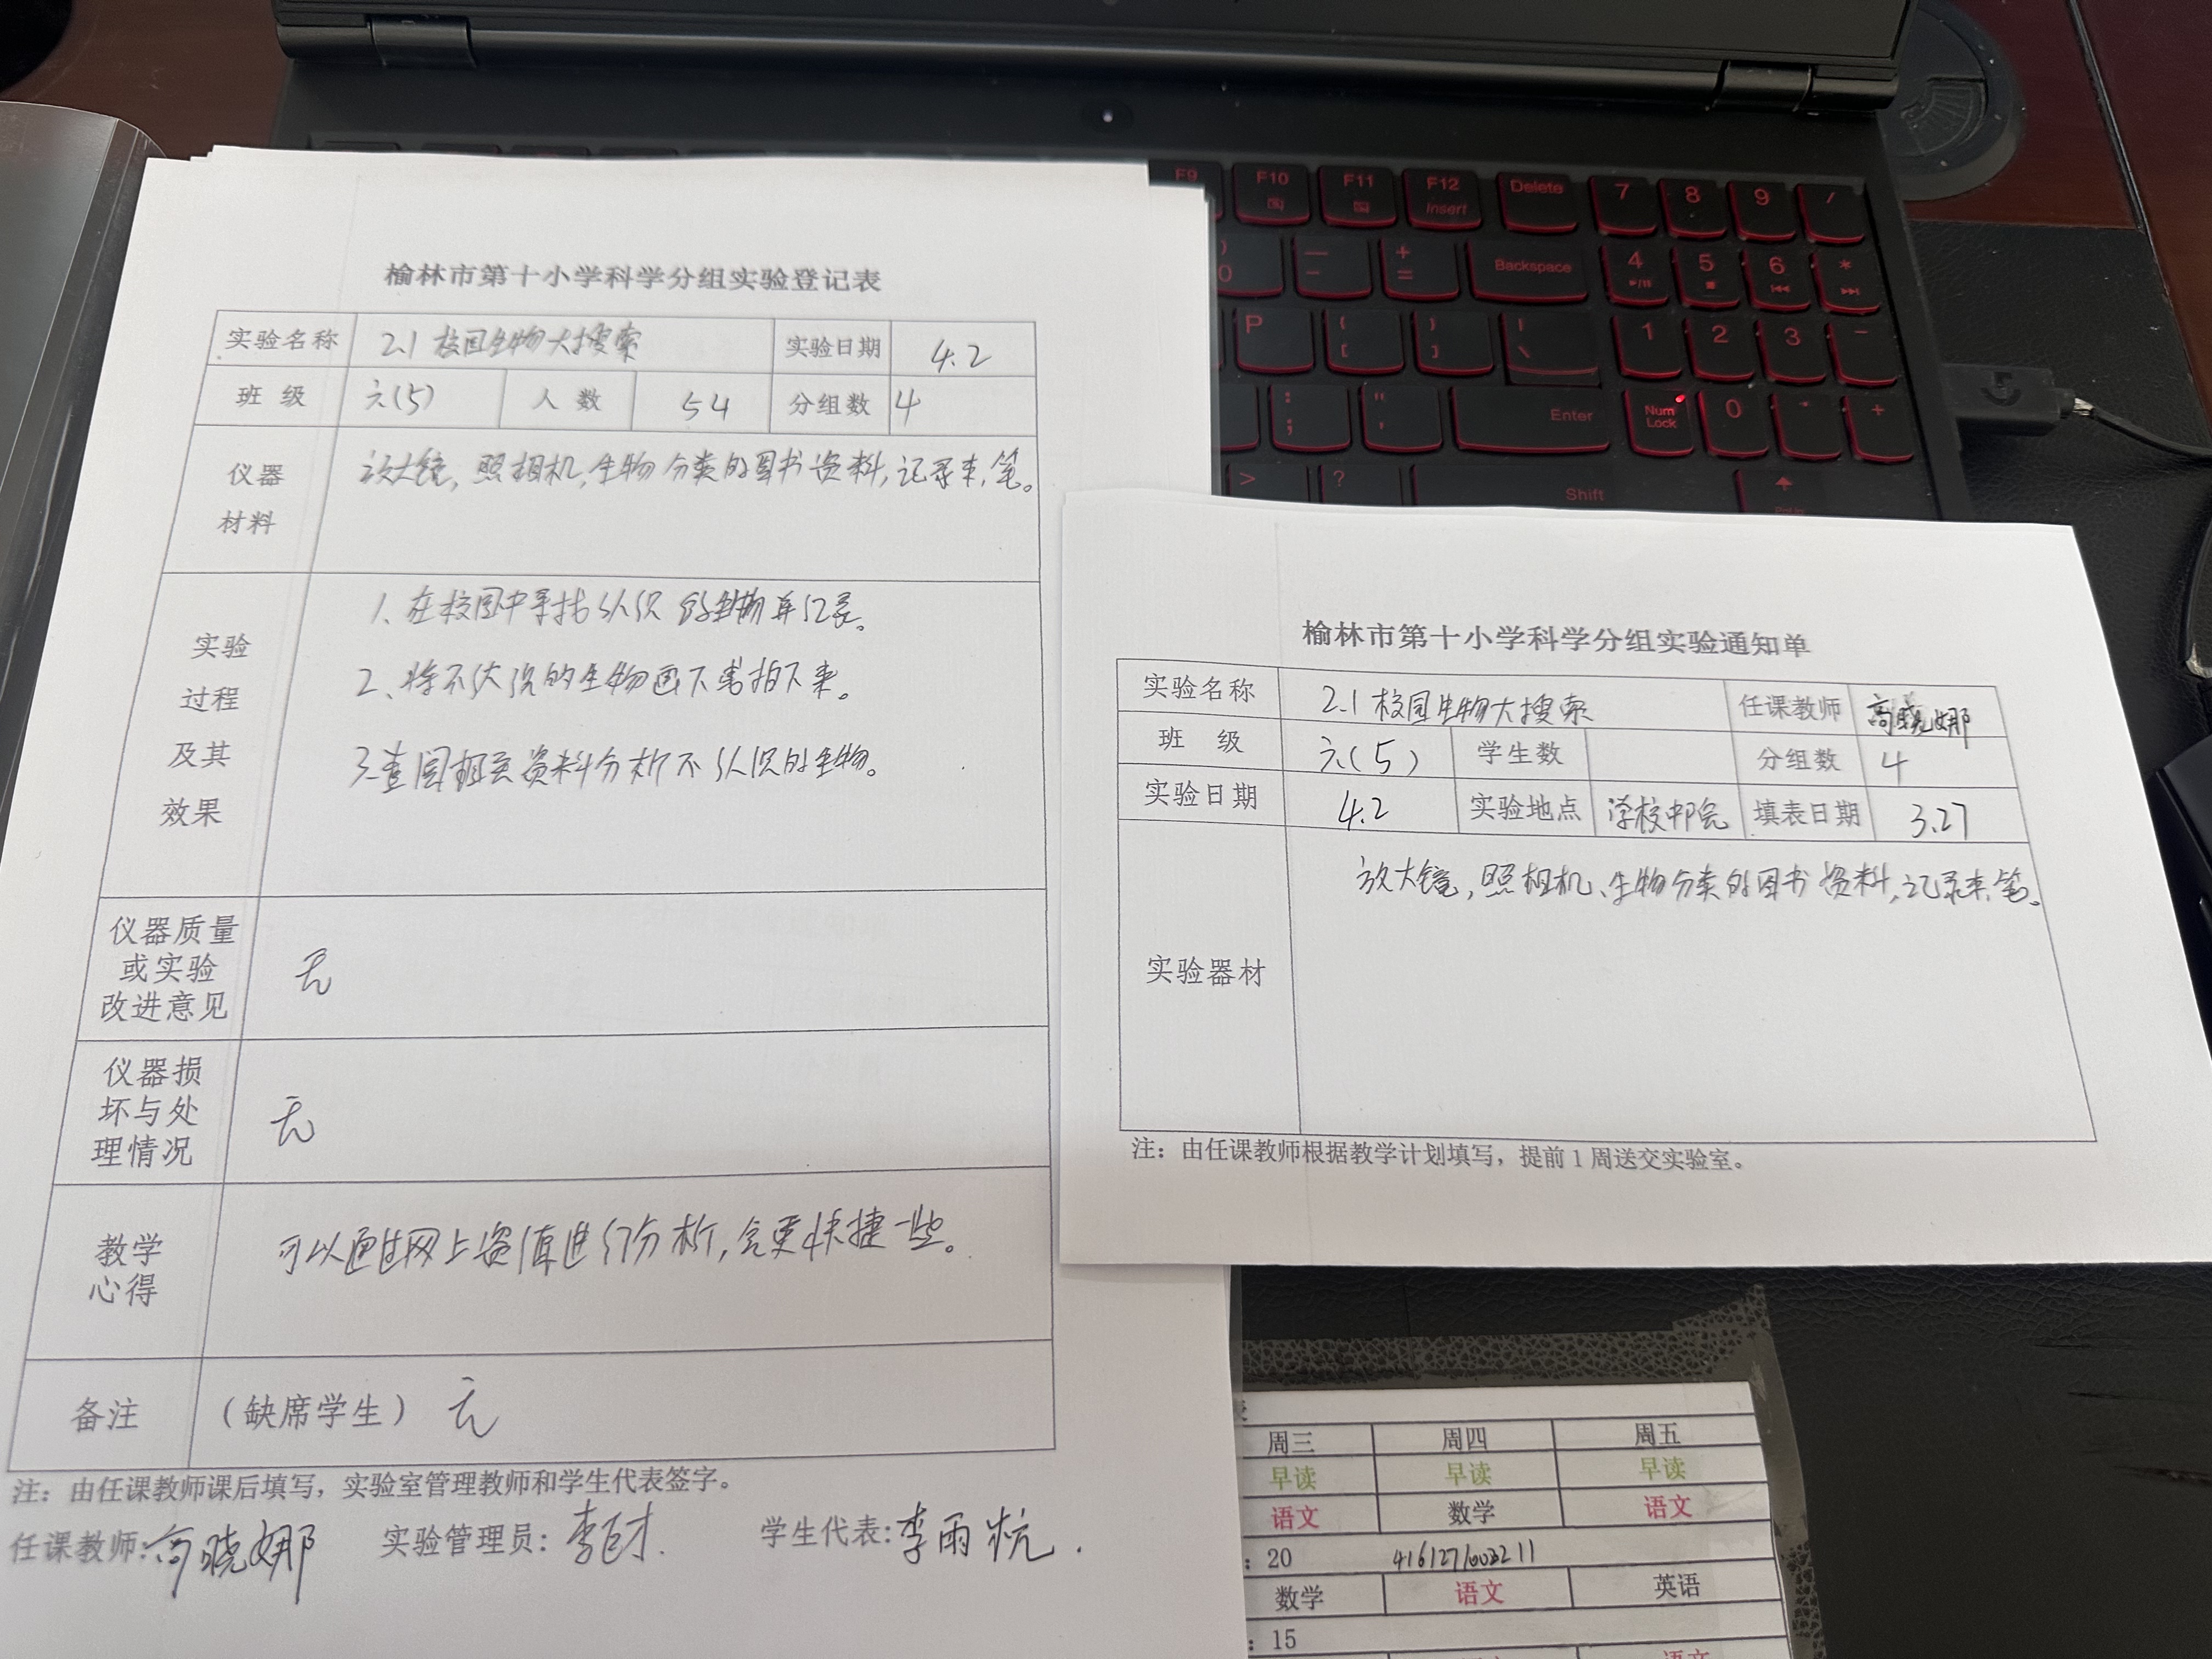 榆林市第十小学科学分组实验登记表
实验名称 2.1 校园生物大搜索 实验日期 4.2
班 级 六(5) 人 数 54 分组数 4
仪器
材料
放大镜,照相机,生物分类的图书资料,记录本,笔。
实验
过程
及其
效果
1、在校园中寻找认识的生物并记录。
2、将不认识的生物画下或拍下来。
3.查阅相关资料分析不认识的生物。
仪器质量
或实验
改进意见
无
仪器损
坏与处
理情况
无
教学
心得
可以通过网上资源进行分析,会更快捷一些。
备注 (缺席学生) 无
注:由任课教师课后填写,实验室管理教师和学生代表签字。
任课教师:高晓娜 实验管理员:李 学生代表:李雨杭.
榆林市第十小学科学分组实验通知单
实验名称 2.1 校园生物大搜索 任课教师 高晓娜
班 级 六(5) 学生数 分组数 4
实验日期 4.2 实验地点 学校中院 填表日期 3.27
实验器材
放大镜,照相机、生物分类的图书资料,记录本,笔。
注:由任课教师根据教学计划填写,提前 1 周送交实验室。
周三 周四 周五
早读 早读 早读
语文 数学 语文
: 20
数学 语文 英语
: 15
F9 F10 F11 F12 Delete 7 8 9 /
Insert
0 — - + = Backspace 4 5 6 *
P { [ } ] | \ 1 2 3 -
: ; " ' Enter Num Lock 0 . +
> ? Shift